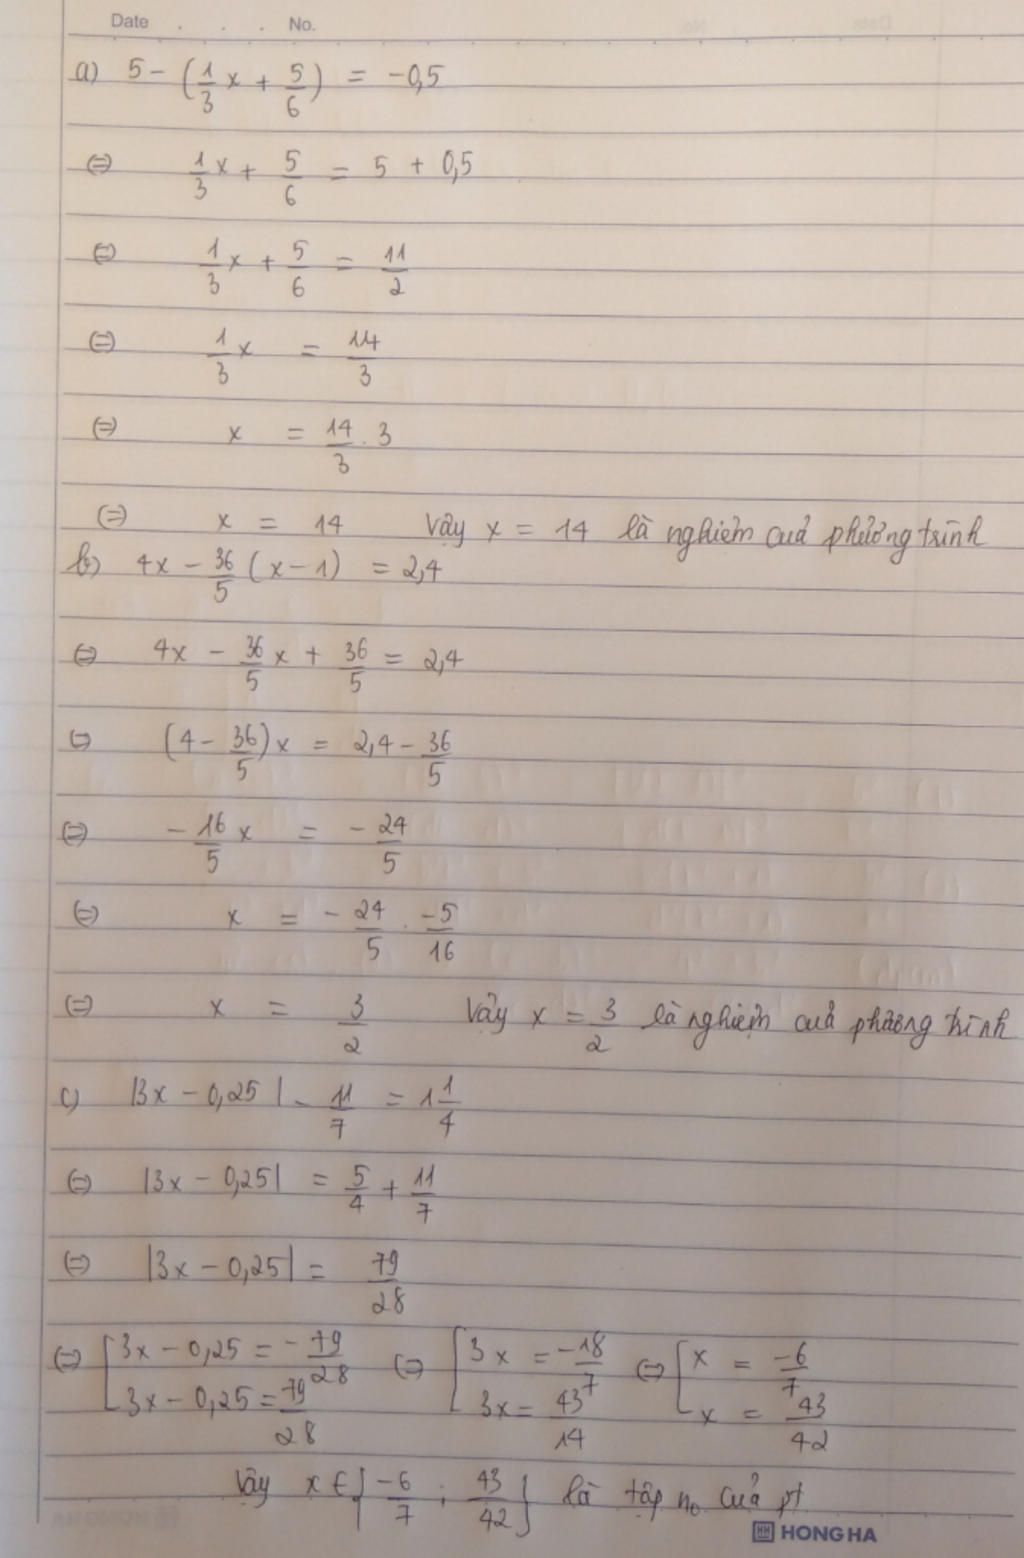 Date . . . No.
a) 5 - (1/3 x + 5/6) = -0,5
⇔ 1/3 x + 5/6 = 5 + 0,5
⇔ 1/3 x + 5/6 = 11/2
⇔ 1/3 x = 14/3
⇔ x = 14/3 . 3
⇔ x = 14 Vậy x = 14 là nghiệm của phương trình
b) 4x - 36/5 (x - 1) = 2,4
⇔ 4x - 36/5 x + 36/5 = 2,4
⇔ (4 - 36/5) x = 2,4 - 36/5
⇔ - 16/5 x = - 24/5
⇔ x = - 24/5 . -5/16
⇔ x = 3/2 Vậy x = 3/2 là nghiệm của phương trình
c) |3x - 0,25| - 11/7 = 1 1/4
⇔ |3x - 0,25| = 5/4 + 11/7
⇔ |3x - 0,25| = 79/28
⇔ [3x - 0,25 = - 79/28 ⇔ [3x = -18/7 ⇔ [x = -6/7
3x - 0,25 = 79/28 3x = 43/14 x = 43/42
Vậy x ∈ {-6/7 ; 43/42} là tập n₀ của pt
HONG HA